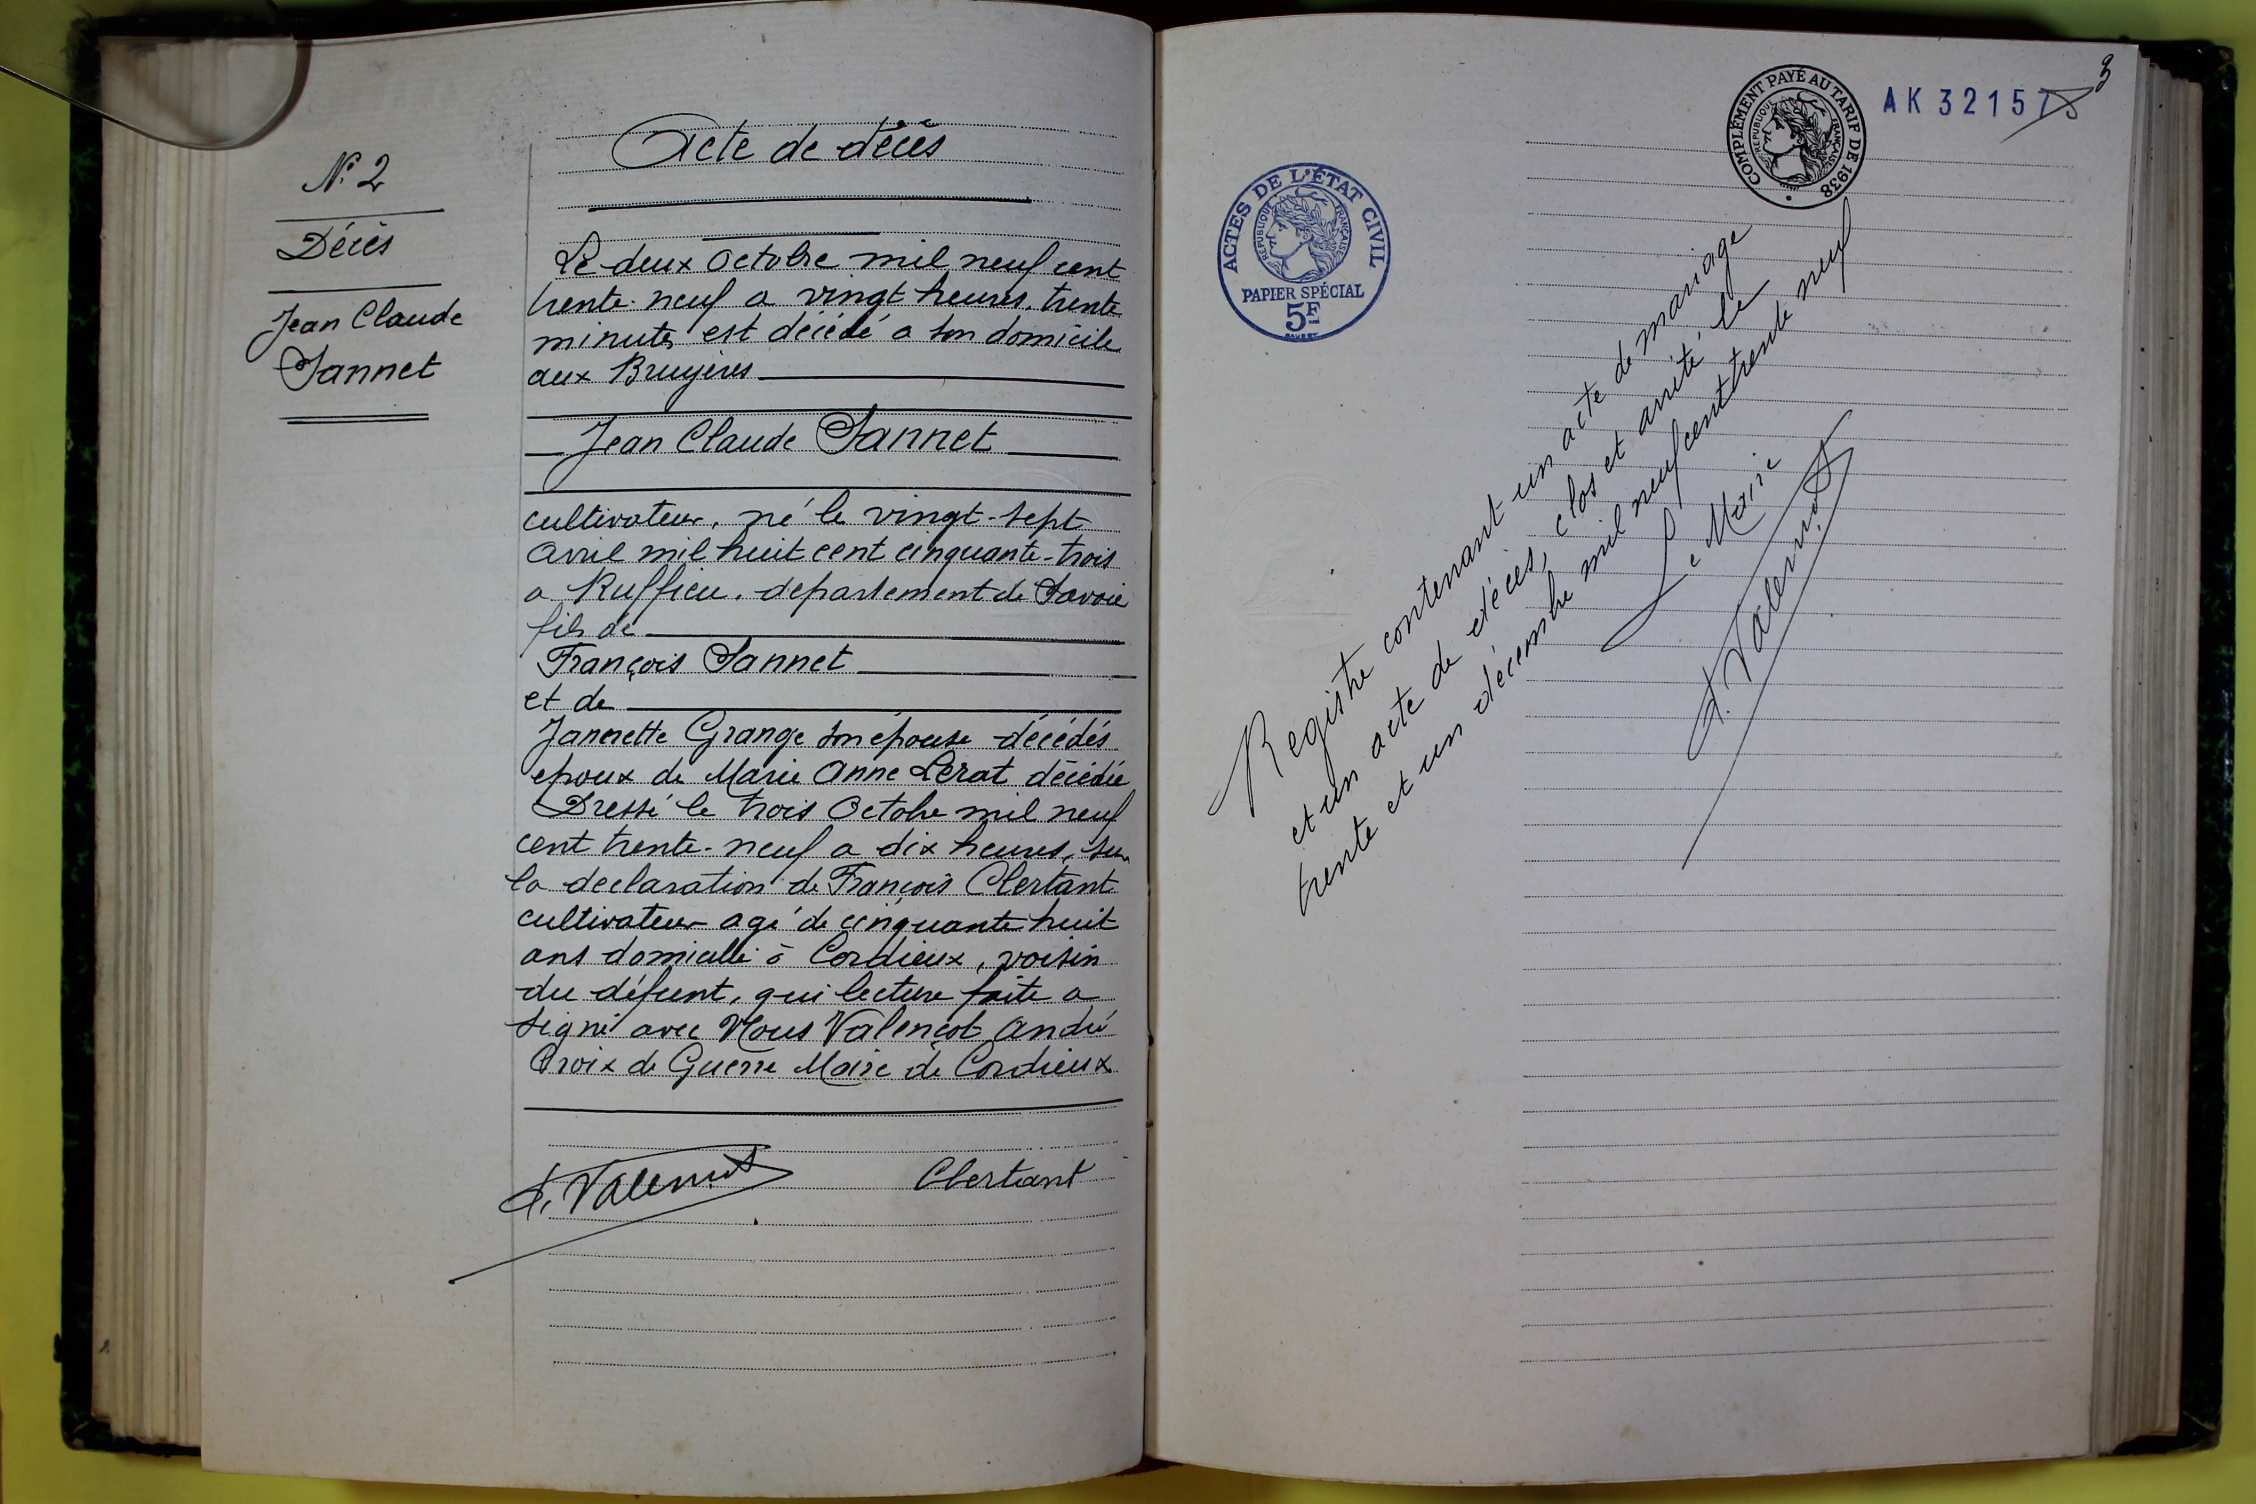 N° 2
Décès
Jean Claude
Jannet
Acte de décès
Le deux Octobre mil neuf cent
trente-neuf a vingt heures, trente
minutes est décédé a son domicile
aux Bruyères
Jean Claude Jannet
cultivateur, né le vingt-sept
Avril mil huit cent cinquante-trois
a Ruffieu, departement de Savoie
fils de
François Jannet
et de
Jannette Grange son épouse décédés
epoux de Marie Anne Lerat décédée
Dressé le trois Octobre mil neuf
cent trente-neuf a dix heures, sur
la declaration de François Clertant
cultivateur agé de cinquante huit
ans domicilié à Cordieux, voisin
du défunt, qui lecture faite a
signé avec Nous Valençot André
Croix de Guerre Maire de Cordieux
A. Valençot
Clertant
3
AK 32157
COMPLÉMENT PAYÉ AU TARIF DE 1938
RÉPUBLIQUE FRANÇAISE
ACTES DE L'ÉTAT CIVIL
RÉPUBLIQUE FRANÇAISE
PAPIER SPÉCIAL
5F
Registre contenant un acte de mariage
et un acte de décès, clos et arrêté le
trente et un décembre mil neuf cent trente neuf
Le Maire
A. Valençot